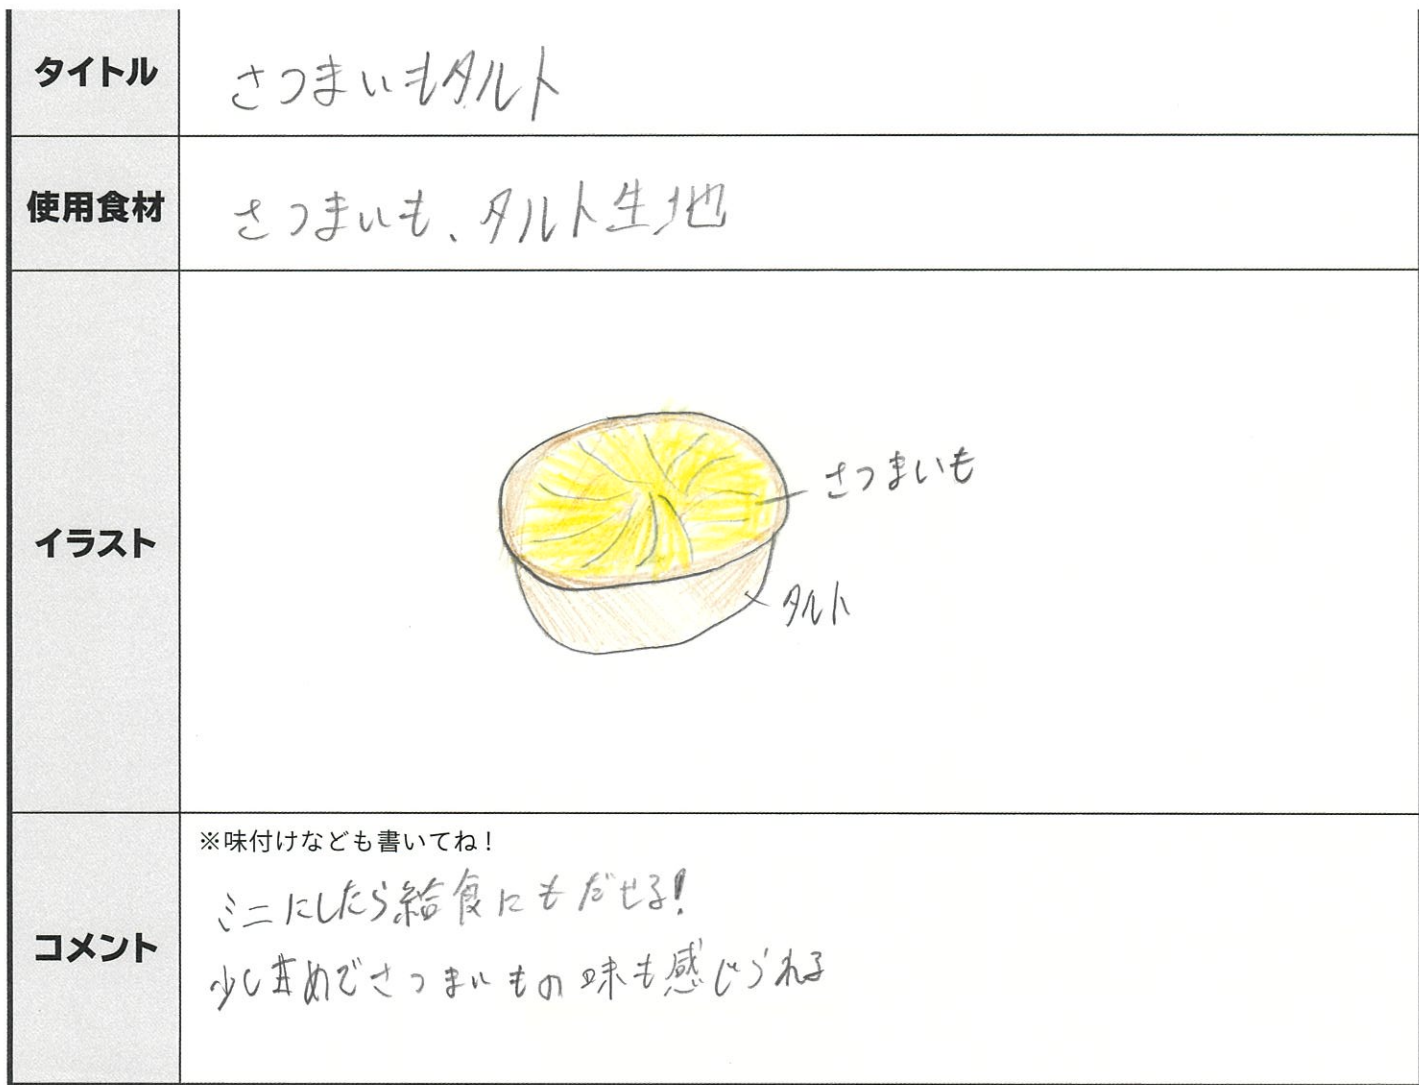 タイトル
さつまいもタルト
使用食材
さつまいも、タルト生地
イラスト
さつまいも
タルト
コメント
※味付けなども書いてね！
ミニにしたら給食にもだせる！
少し甘めでさつまいもの味も感じられる